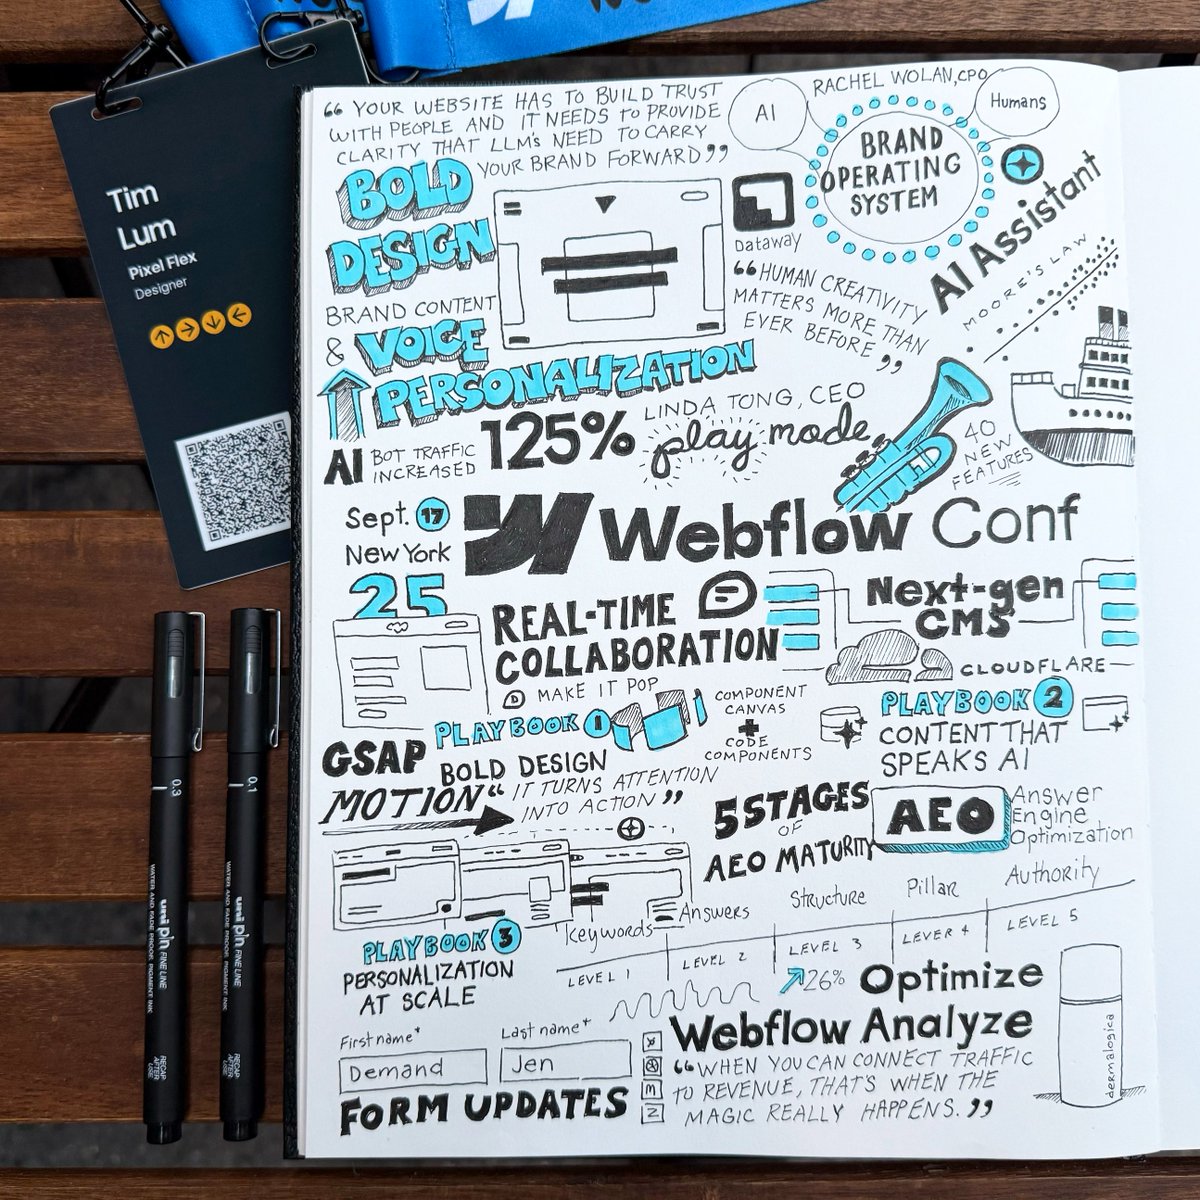 Tim
Lum
Pixel Flex
Designer
0.3
WATER AND FADE PROOF, PIGMENT INK
uni pin FINE LINE
RECAP
AFTER
USE
0.1
WATER AND FADE PROOF, PIGMENT INK
uni pin FINE LINE
RECAP
AFTER
USE
“ YOUR WEBSITE HAS TO BUILD TRUST
WITH PEOPLE AND IT NEEDS to PROVIDE
CLARITY THAT LLM's NEED TO CARRY
YOUR BRAND FORWARD ”
AI
RACHEL WOLAN, CPO
Humans
BRAND
OPERATING
SYSTEM
BOLD
DESIGN
Dataway
AI Assistant
MOORE'S LAW
BRAND CONTENT
& VOICE
PERSONALIZATION
“ HUMAN CREATIVITY
MATTERS MORE THAN
EVER BEFORE ”
AI BOT TRAFFIC
INCREASED 125%
LINDA TONG, CEO
play mode
40
NEW
FEATURES
Sept. 17
New York
25
W Webflow Conf
REAL-TIME
COLLABORATION
Next-gen
CMS
CLOUDFLARE
MAKE IT POP
PLAYBOOK 1
BOLD DESIGN
COMPONENT
CANVAS
+
CODE
COMPONENTS
PLAYBOOK 2
CONTENT THAT
SPEAKS AI
GSAP
MOTION
“ IT TURNS ATTENTION
INTO ACTION ”
5 STAGES
OF
AEO MATURITY
AEO
Answer
Engine
Optimization
Keywords
Answers
Structure
Pillar
Authority
LEVEL 1
LEVEL 2
LEVEL 3
LEVER 4
LEVEL 5
PLAYBOOK 3
PERSONALIZATION
AT SCALE
26% Optimize
Webflow Analyze
“ WHEN YOU CAN CONNECT TRAFFIC
to REVENUE, THAT'S WHEN THE
MAGIC REALLY HAPPENS. ”
First name*
Last name*
Demand
Jen
FORM UPDATES
dermalogica